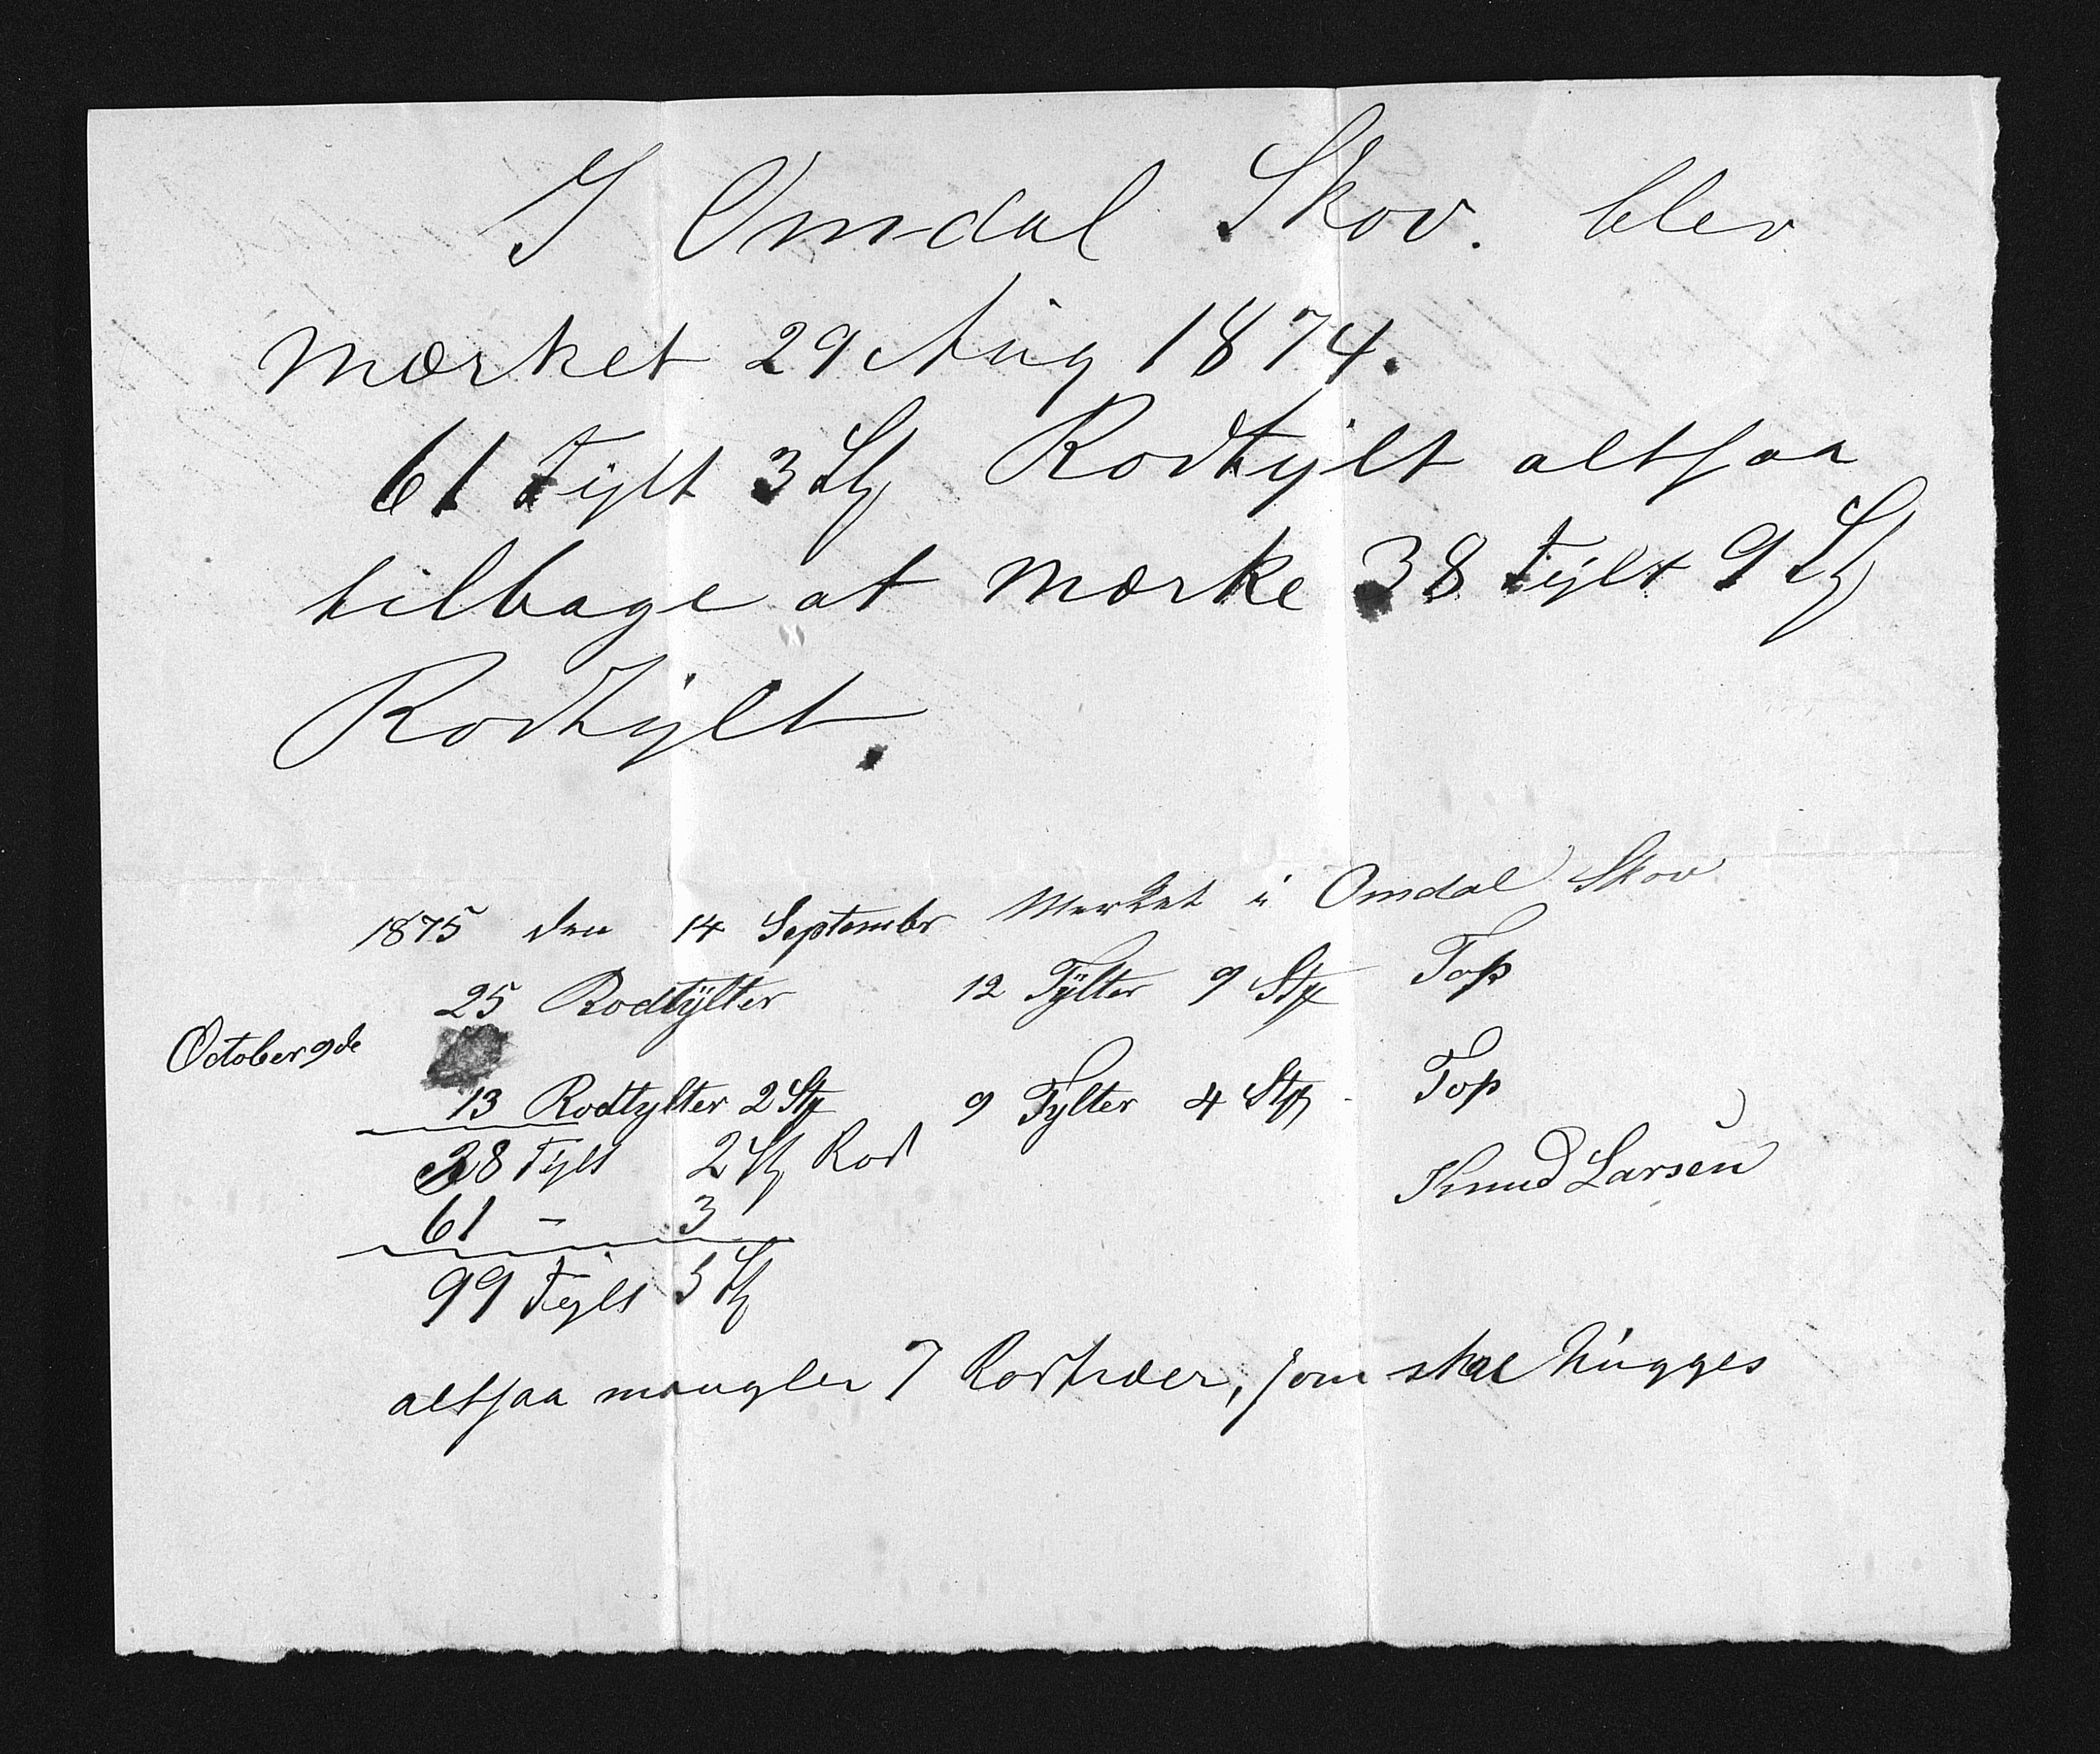 I Omdal Skov. blev
mærket 29 Aug 1874.
61 Tylt 3 St Rodtylt altsaa
tilbage at mærke 38 Tylt 9 St
Rodtylt.
1875 den 14 Septembr Merket i Omdal Skov
25 Rodtylter 12 Tylter 9 Stk Top
October 9de
13 Rodtylter 2 Stk 9 Tylter 4 Stk Top
38 Tylt 2 St Rod
Knud Larsen
61 - 3
99 Tylt 5 St
altsaa mangler 7 Rodtræer, som skal hugges